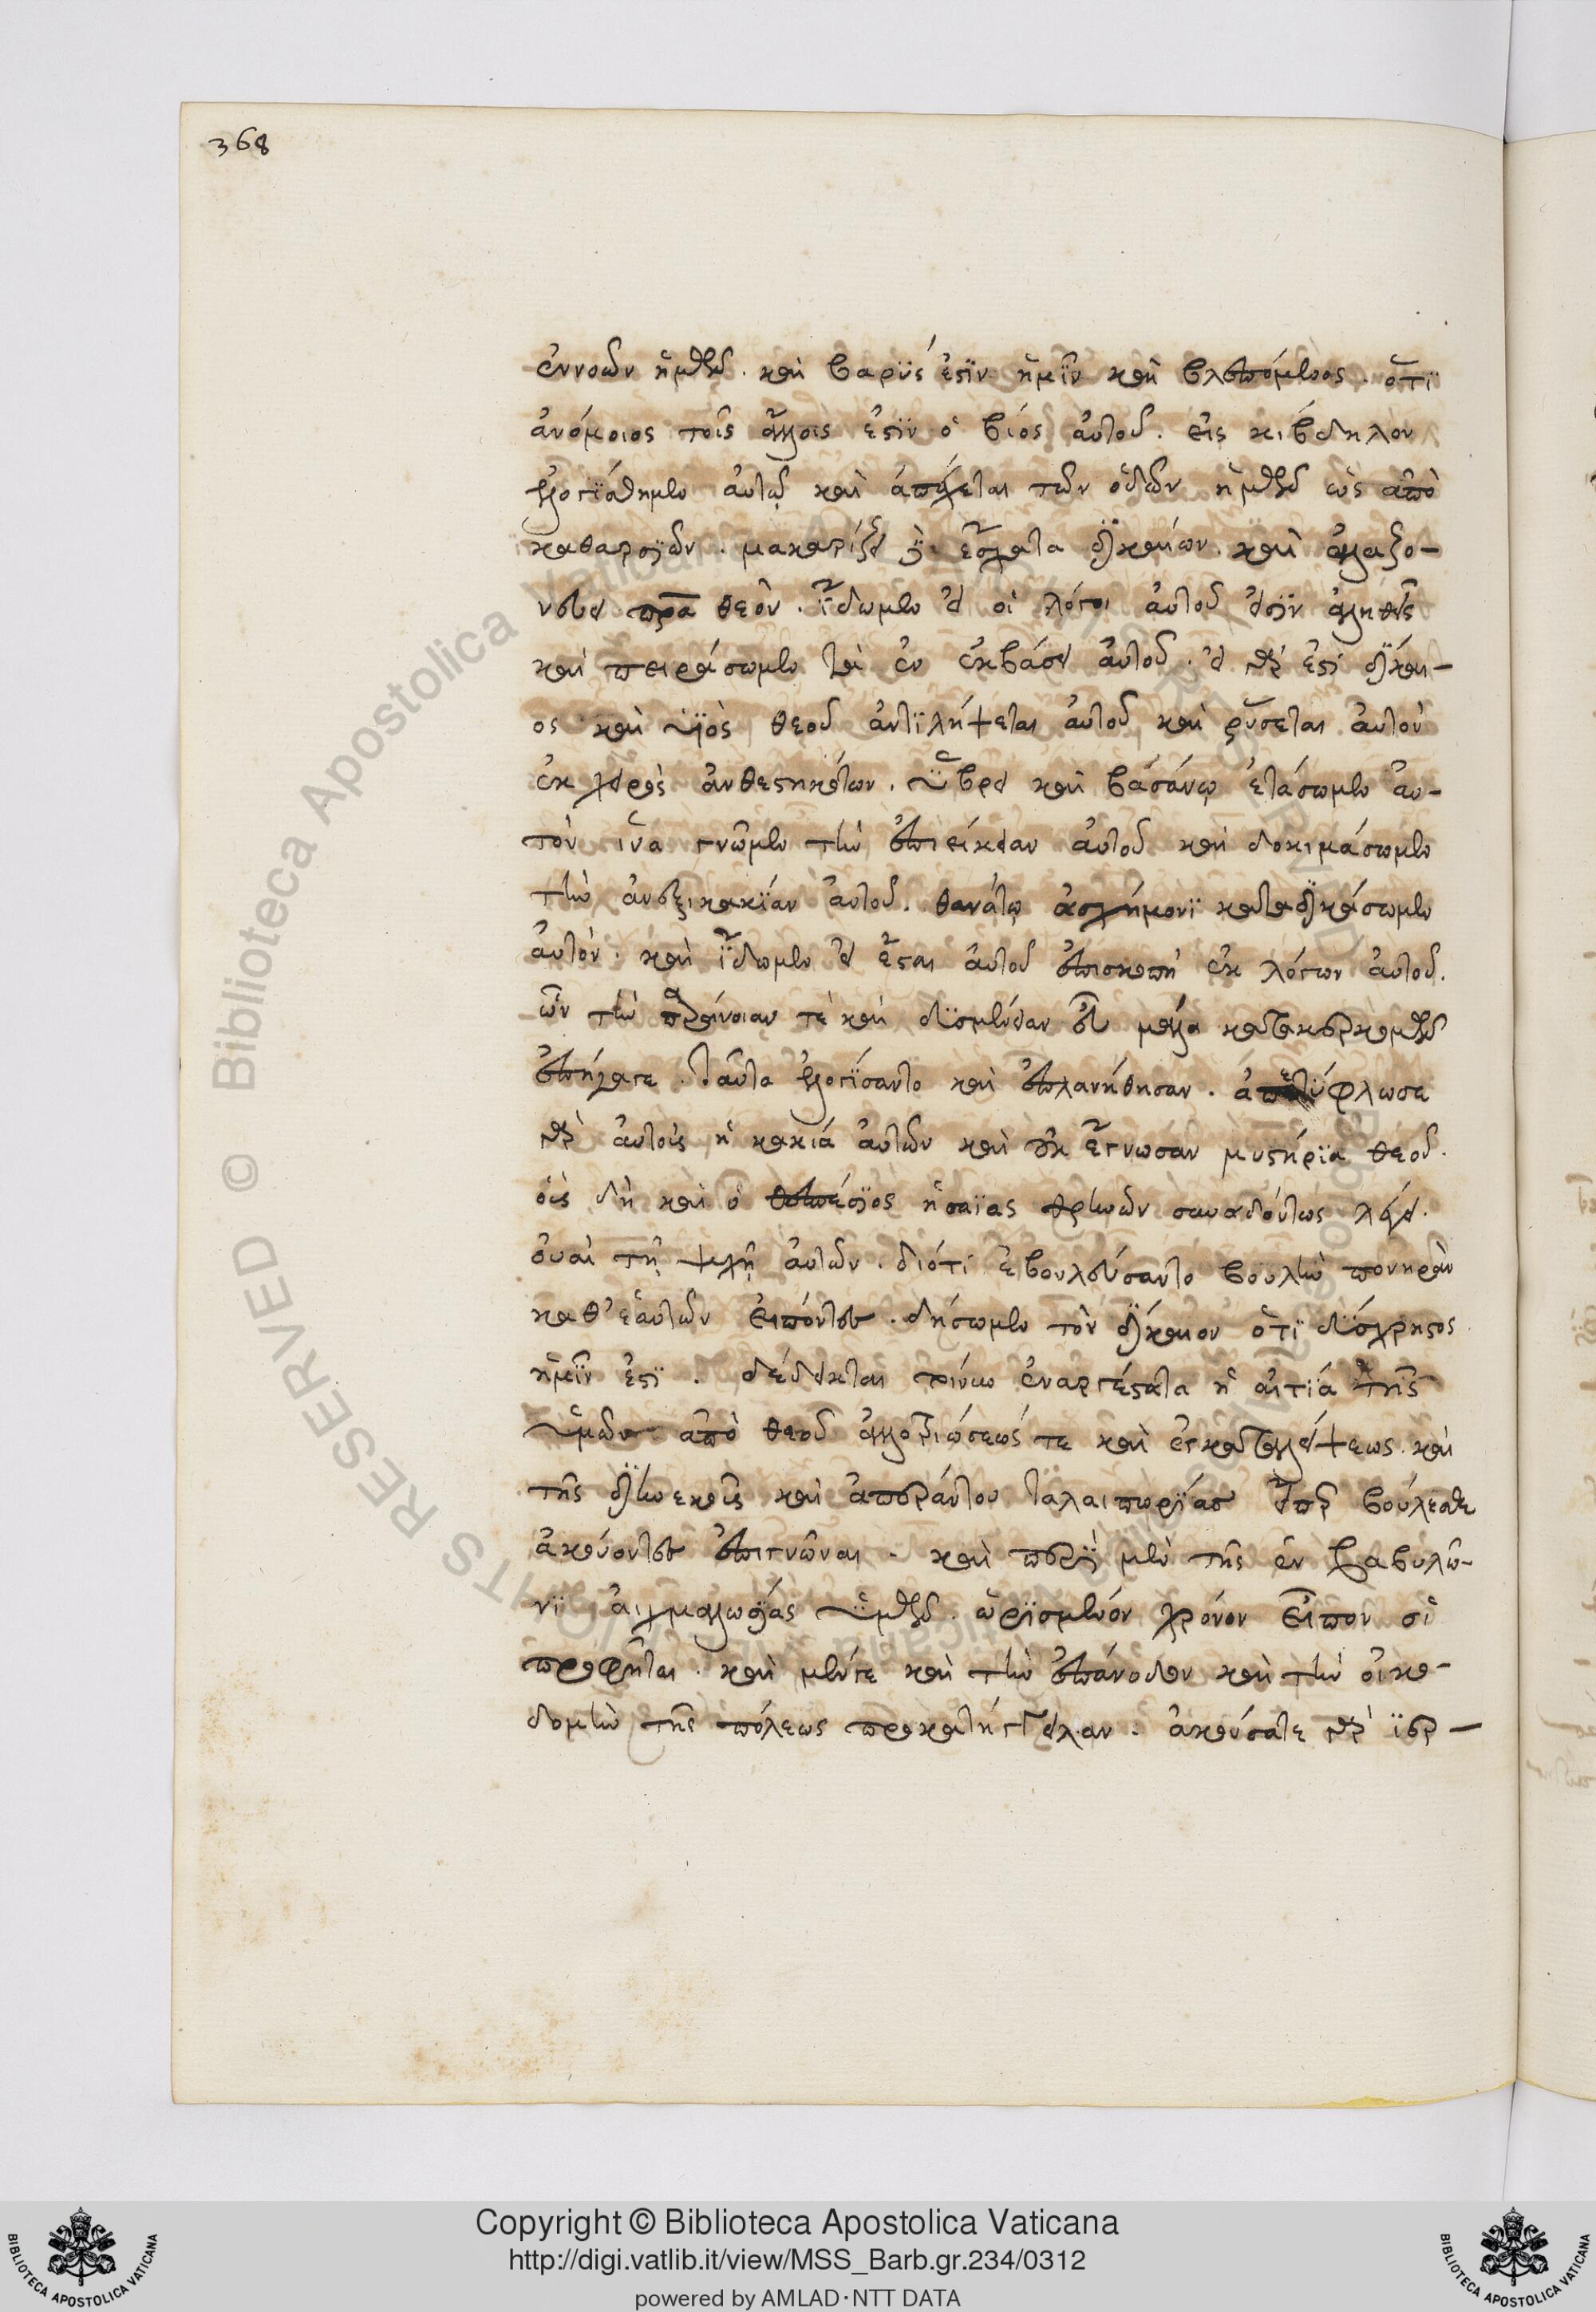 368
ἐννοιῶν ἡμῶν. καὶ βαρύς ἐστϊν ἡμῖν καὶ βλεπόμενος. ὅτϊ
ἀνόμοιος τοῖς ἄλλοις ἐστϊν ὁ βίος αὐτοῦ. εἰς κιβδηλον
ἐλογίσθημεν αὐτῷ καὶ ἀπέχεται τῶν ὁδῶν ἡμῶν ὡς ἀπὸ
καθαρσϊῶν. μακαρίζει ἔσχατα δικαίων. καὶ ἀλαζο-
νεύει πρα θεὸν. ἴδωμεν εἰ οἱ λόγοι αὐτοῦ εἰσϊν ἀληθεῖς
καὶ πειράσωμεν τὰ ἐν ἐκβάσει αὐτοῦ. εἰ γάρ ἐστϊ δίκαι-
ος καὶ υἱὸς θεοῦ ἀντϊλήψεται αὐτοῦ καὶ ῥύσεται αὐτὸν
ἐκ χειρὸς ἀνθεστηκότων. ὕβρει καὶ βασάνῳ ἐτάσωμεν αὐ-
τὸν ἵνα γνῶμεν τὴν ἐπιείκειαν αὐτοῦ καὶ δοκιμάσωμεν
τὴν ἀνεξικακϊάν αὐτοῦ. θανάτῳ ἀσχήμονϊ καταδικάσωμεν
αὐτὸν. καὶ ἴδωμεν εἰ ἔσται αὐτοῦ ἐπισκοπὴ ἐκ λόγων αὐτοῦ.
ὧν τὴν παράνοιαν τὲ καὶ δυσμένειαν μάλα
ἐπήγαγε. ταῦτα ἐλογίσαντο καὶ ἐπλανήθησαν. ἀπετύφλωσε
γάρ αὐτοὺς ἡ κακιά αὐτῶν καὶ οὐκ ἔγνωσαν μυστήρϊα θεοῦ.
οὓς δὴ καὶ ὁ θεσπέσϊος ἡσαΐας θρηνῶν συναδόντως λέγει.
οὐαὶ τῇ ψυχῇ αὐτῶν. διότι ἐβουλεύσαντο βουλὴν πονηρὰν
καθ' ἑαυτῶν εἰπόντες. δήσωμεν τὸν δίκαιον ὅτϊ δύσχρηστος
ἡμῖν ἐστϊ. δέδεικται τοίνυν ἐναργέστατα ἡ αἰτϊά τῆς
ὑμῶν ἀπὸ θεοῦ ἀλλοτριώσεώς τε καὶ ἐγκαταλείψεως. καὶ
τῆς διηνεκοῦς καὶ ἀπεράντου ταλαιπωρϊας εἴπερ βούλεσθε
ἀκούοντες ἐπιγνῶναι. καὶ περὶ μὲν τῆς ἐν βαβυλῶ-
νϊ αἰχμαλωσίας ὑμῶν. ὡρϊσμένον χρόνον εἶπον οἱ
προφῆται. καὶ μέντε καὶ τὴν ἐπάνοδον καὶ τὴν οἰκο-
δομὴν τῆς πόλεως προκατήγγειλαν. ἀκούσατε γάρ ϊερ-
Copyright © Biblioteca Apostolica Vaticana
http://digi.vatlib.it/view/MSS_Barb.gr.234/0312
powered by AMLAD·NTT DATA